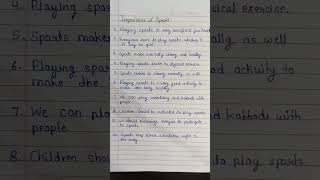 4. Playing spo
physical exercise.
5. Sports makes
ally as well
6. Playing spor
od activity to
make the
7. We can pla
d kabbadi with
people.
8. Children sho
to play sports
Importance of Sports
1. Playing sports is very beneficial
2. Everyone loves to play sports whether it
is boy or girl
3. Sports make our body strong and healthy
4. Playing sports leads to physical exercise.
5. Sports makes us strong mentally as well
6. Playing sports is a very good activity to
make the body healthy
7. We can play and kabbadi with
people.
8. Children should be motivated to play sports
9. We should encourage everyone to participate
in sports
10. Sports keep blood circulation right in
the body.